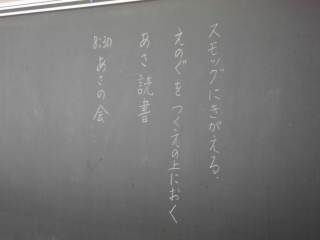 スモックにきがえる.
えのぐを つくえの上におく
あさ 読書
8:30 あさの会